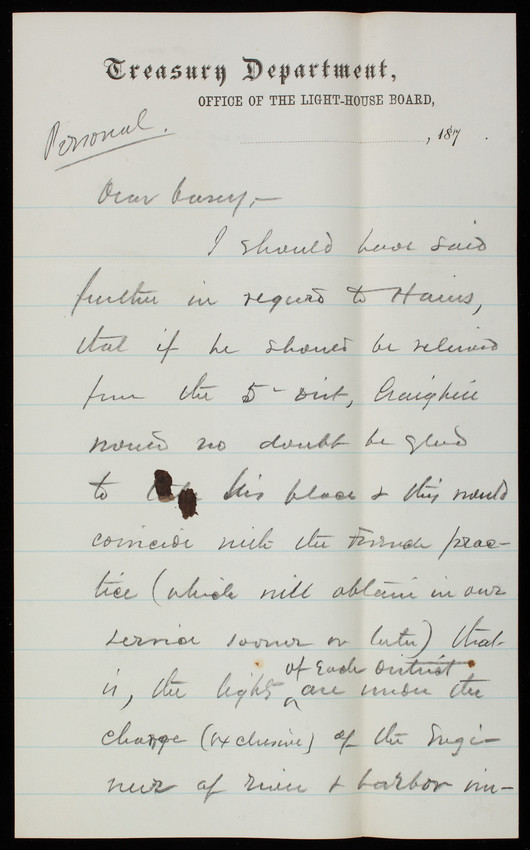 Treasury Department,
OFFICE OF THE LIGHT-HOUSE BOARD,
Personal.
, 187 .
Dear Casey,—
I should have said
further in regard to Hains,
that if he should be relieved
from the 5- dist, Craighill
would no doubt be glad
to his place & this would
coincide with the French prac-
tice (which will obtain in our
service sooner or later) that
is, the lights of each district are under the
charge (exclusive) of the Engi-
neer of river & harbor im-